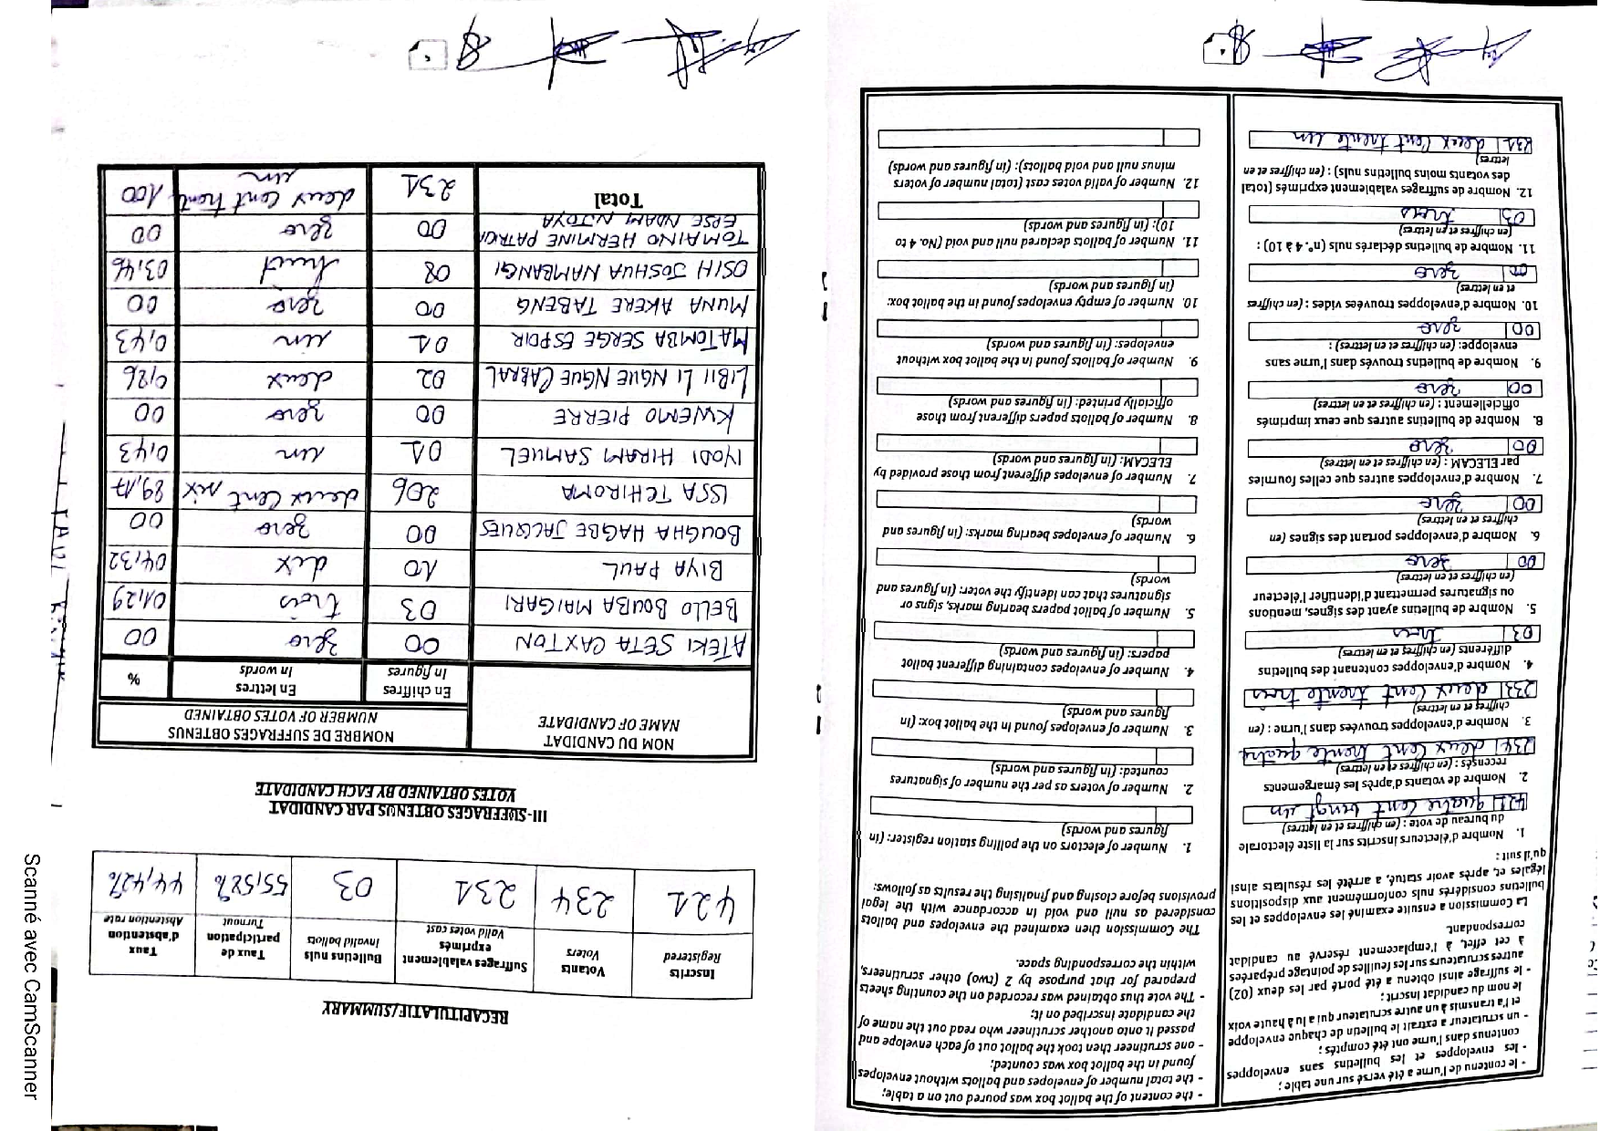 - le contenu de l'urne a été versé sur une table ;
- les enveloppes et les bulletins sans enveloppes
contenus dans l'urne ont été comptés ;
- un scrutateur a extrait le bulletin de chaque enveloppe
et l'a transmis à un autre scrutateur qui a lu à haute voix
le nom du candidat inscrit ;
- le suffrage ainsi obtenu a été porté par les deux (02)
autres scrutateurs sur les feuilles de pointage préparées
à cet effet, à l'emplacement réservé au candidat
correspondant.
La Commission a ensuite examiné les enveloppes et les
bulletins considérés nuls conformément aux dispositions
légales et, après avoir statué, a arrêté les résultats ainsi
qu'il suit :
1. Nombre d'électeurs inscrits sur la liste électorale
du bureau de vote : (en chiffres et en lettres)
421 quatre cent vingt un
2. Nombre de votants d'après les émargements
recensés : (en chiffres et en lettres)
234 deux cent trente quatre
3. Nombre d'enveloppes trouvées dans l'urne : (en
chiffres et en lettres)
233 deux cent trente trois
4. Nombre d'enveloppes contenant des bulletins
différents (en chiffres et en lettres)
03 trois
5. Nombre de bulletins ayant des signes, mentions
ou signatures permettant d'identifier l'électeur
(en chiffres et en lettres)
00 zero
6. Nombre d'enveloppes portant des signes (en
chiffres et en lettres)
00 zero
7. Nombre d'enveloppes autres que celles fournies
par ELECAM : (en chiffres et en lettres)
00 zero
8. Nombre de bulletins autres que ceux imprimés
officiellement : (en chiffres et en lettres)
00 zero
9. Nombre de bulletins trouvés dans l'urne sans
enveloppe: (en chiffres et en lettres) :
00 zero
10. Nombre d'enveloppes trouvées vides : (en chiffres
et en lettres)
00 zero
11. Nombre de bulletins déclarés nuls (n°. 4 à 10) :
(en chiffres et en lettres)
03 trois
12. Nombre de suffrages valablement exprimés (total
des votants moins bulletins nuls) : (en chiffres et en
lettres)
231 deux cent trente un
- the content of the ballot box was poured out on a table;
- the total number of envelopes and ballots without envelopes
found in the ballot box was counted;
- one scrutineer then took the ballot out of each envelope and
passed it onto another scrutineer who read out the name of
the candidate inscribed on it;
- The vote thus obtained was recorded on the counting sheets
prepared for that purpose by 2 (two) other scrutineers,
within the corresponding space.
The Commission then examined the envelopes and ballots
considered as null and void in accordance with the legal
provisions before closing and finalising the results as follows:
1. Number of electors on the polling station register: (in
figures and words)
2. Number of voters as per the number of signatures
counted: (in figures and words)
3. Number of envelopes found in the ballot box: (in
figures and words)
4. Number of envelopes containing different ballot
papers: (in figures and words)
5. Number of ballot papers bearing marks, signs or
signatures that can identify the voter: (in figures and
words)
6. Number of envelopes bearing marks: (in figures and
words)
7. Number of envelopes different from those provided by
ELECAM: (in figures and words)
8. Number of ballots papers different from those
officially printed: (in figures and words)
9. Number of ballots found in the ballot box without
envelopes: (in figures and words)
10. Number of empty envelopes found in the ballot box:
(in figures and words)
11. Number of ballots declared null and void (No. 4 to
10): (in figures and words)
12. Number of valid votes cast (total number of voters
minus null and void ballots): (in figures and words)
RECAPITULATIF/SUMMARY
Inscrits Registered | Votants Voters | Suffrages valablement exprimés Valid votes cast | Bulletins nuls Invalid ballots | Taux de participation Turnout | Taux d'abstention Abstention rate
421 | 234 | 231 | 03 | 55,58% | 44,42%
III-SUFFRAGES OBTENUS PAR CANDIDAT
VOTES OBTAINED BY EACH CANDIDATE
NOM DU CANDIDAT NAME OF CANDIDATE | NOMBRE DE SUFFRAGES OBTENUS NUMBER OF VOTES OBTAINED
En chiffres In figures | En lettres In words | %
ATEKI SETA CAXTON | 00 | zero | 00
BELLO BOUBA MAIGARI | 03 | trois | 01,29
BIYA PAUL | 10 | dix | 04,32
BOUGHA HAGBE JACQUES | 00 | zero | 00
ISSA TCHIROMA | 206 | deux cent six | 89,17
IYODI HIRAM SAMUEL | 01 | un | 0,43
KWEMO PIERRE | 00 | zero | 00
LIBII LI NGUE NGUE CABRAL | 02 | deux | 0,86
MATOMBA SERGE ESPOIR | 01 | un | 0,43
MUNA AKERE TABENG | 00 | zero | 00
OSIH JOSHUA NAMBANGI | 08 | huit | 03,46
TOMAINO HERMINE PATRICIA EPSE NDAM NJOYA | 00 | zero | 00
Total | 231 | deux cent trente un | 100
Scanné avec CamScanner